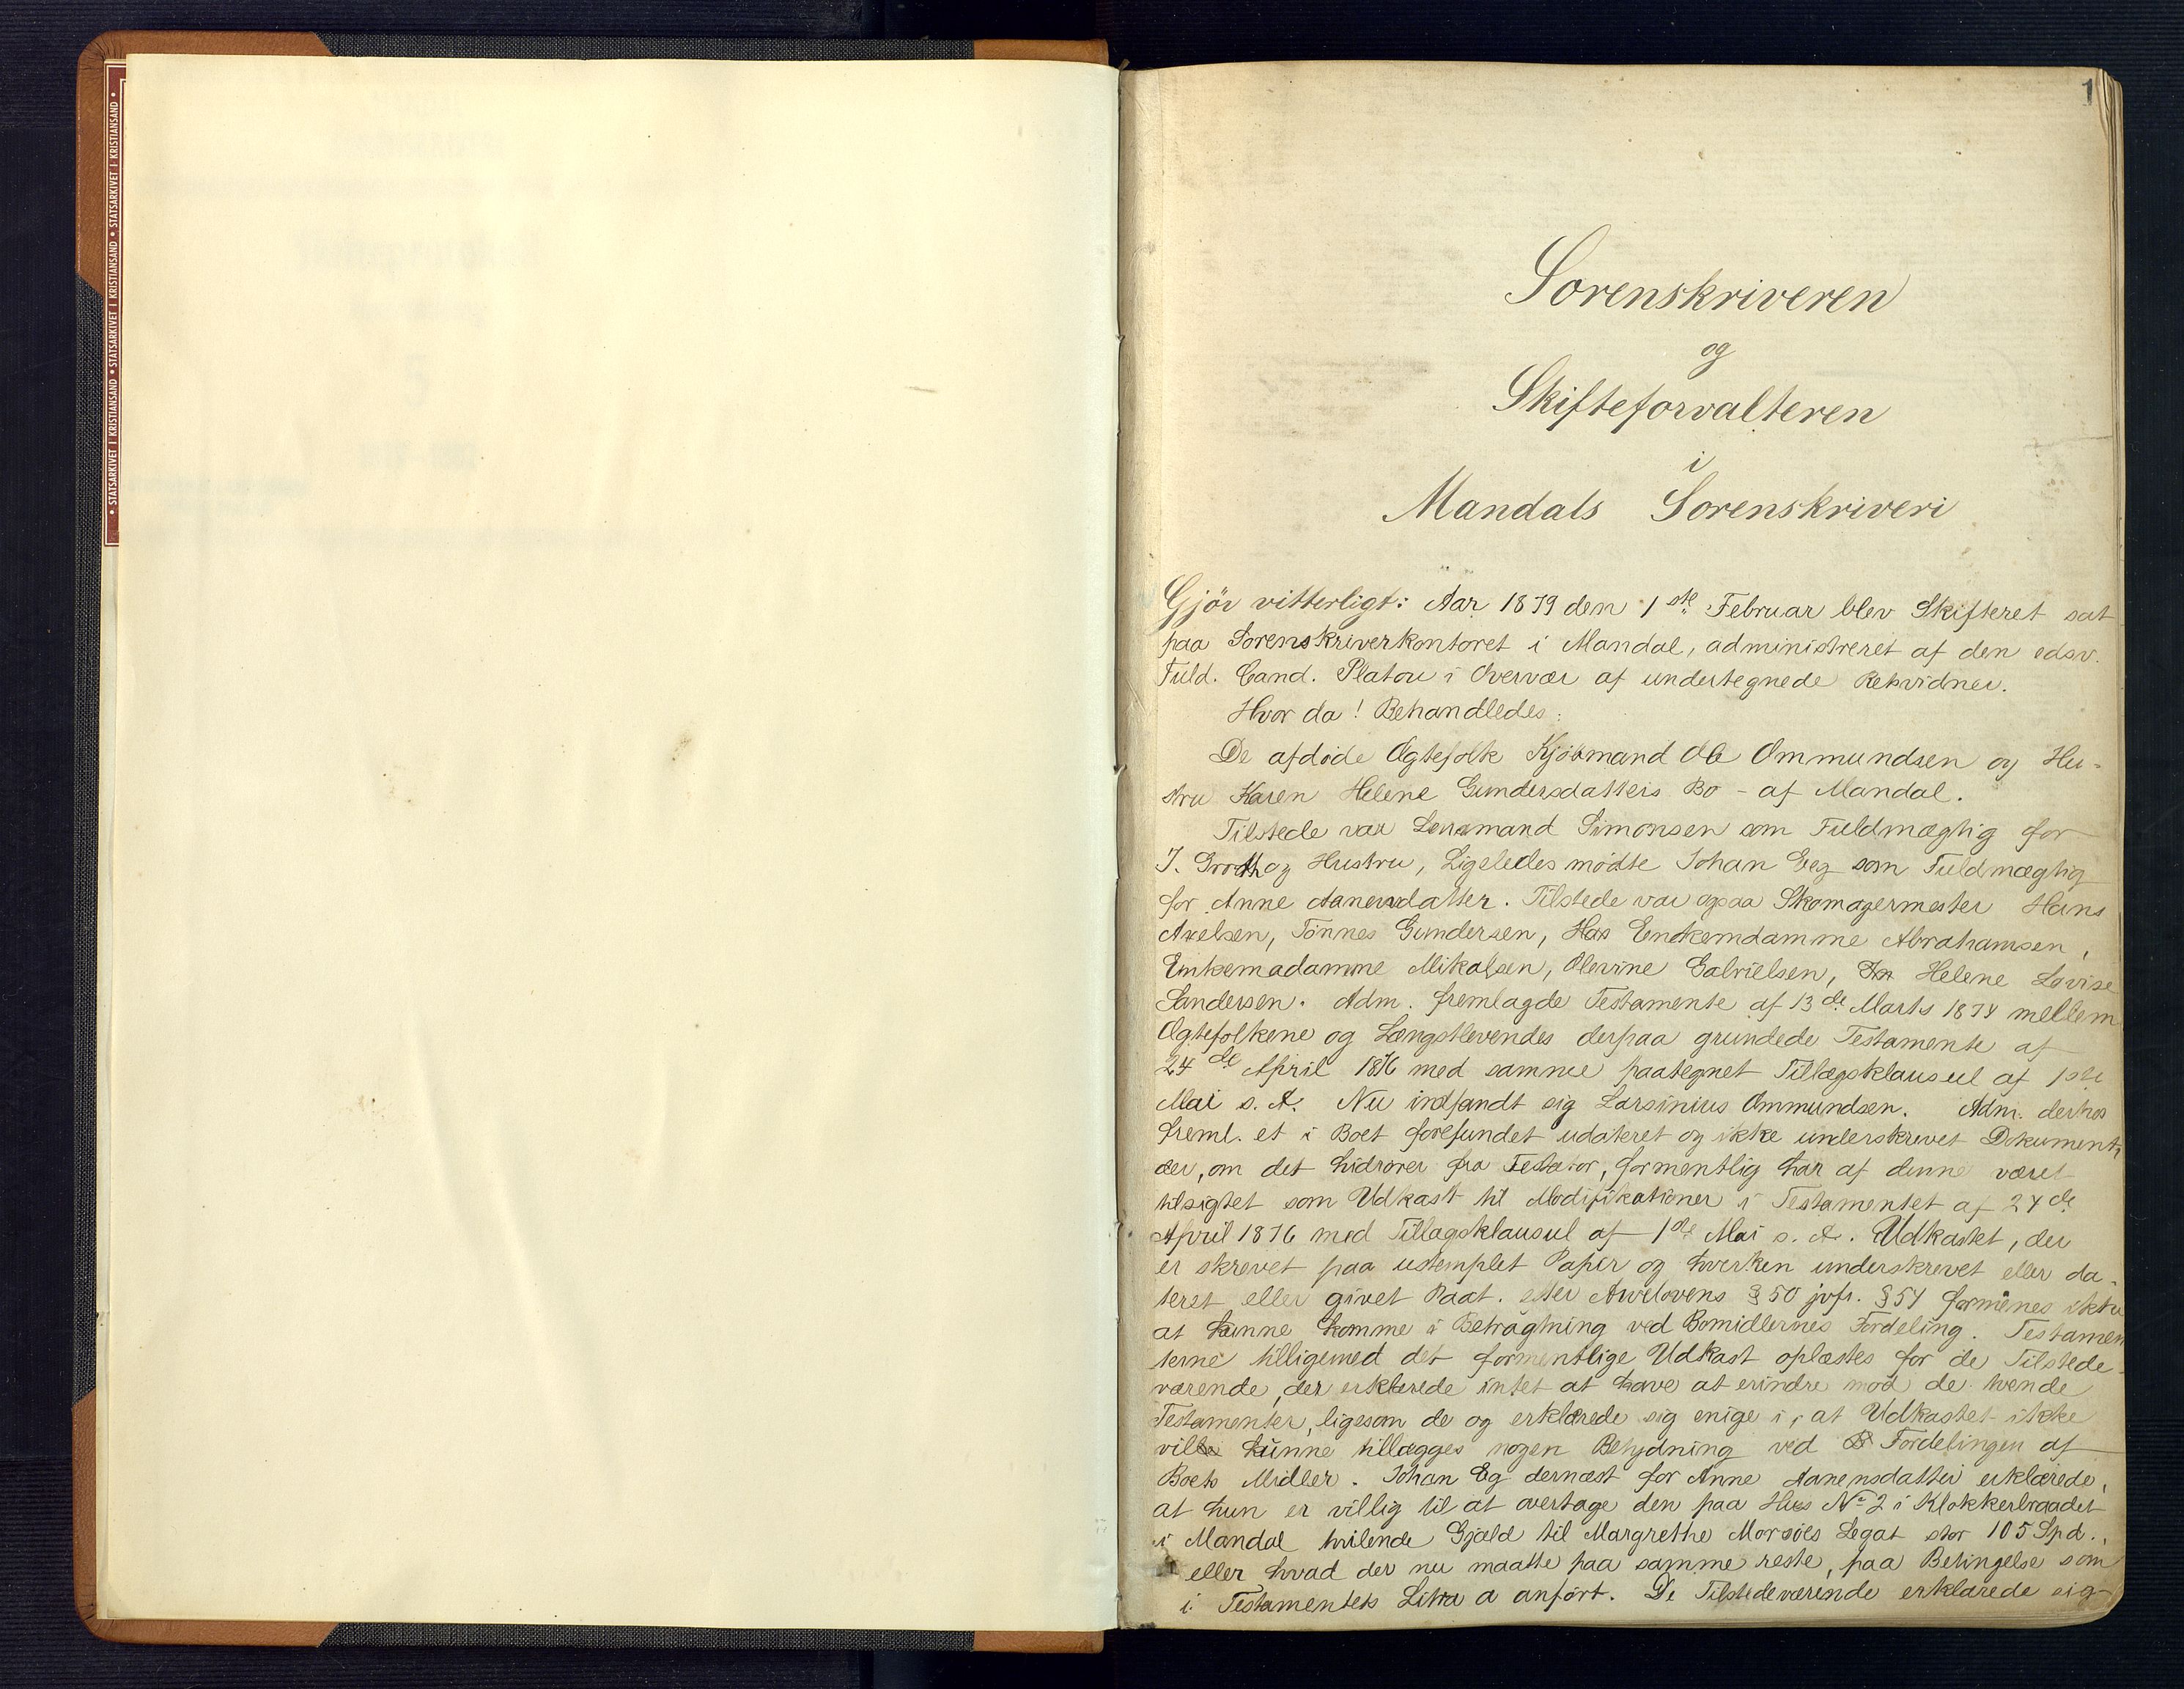 • STATSARKIVET I KRISTIANSAND • STATSARKIVET I KRISTIANSAND • STATSARKIVET I KRISTIANSAND •
1
Sorenskriveren
og
Skifteforvalteren
i
Mandals Sorenskriveri
Gjör vitterligt: Aar 1879 den 1ste Februar blev Skifteret sat
paa Sorenskriverkontoret i Mandal, administreret af den edsv.
Fuld. Cand. Platou i Overvær af undertegnede Retsvidner.
Hvor da! Behandledes:
De afdöde Ægtefolk Kjöbmand Ole Ommundsen og Hu-
stru Karen Helene Gundersdatters Bo - af Mandal.
Tilstede var Lensmand Simonsen som Fuldmægtig for
J. Groth og Hustru, Ligeledes mödte Johan Eeg som Fuldmægtig
for Anne Aanensdatter. Tilstede var ogsaa Skomagermester Hans
Axelsen, Tönnes Gundersen, Enkemdamme Abrahamsen,
Enkemadamme Mikalsen, Olevine Gabrielsen, Helene Lovise
Sandersen. Adm. fremlagde Testamente af 13de Marts 1874 mellem
Ægtefolkene og Længstlevendes derpaa grundede Testamente af
24de April 1876 med samme paategnet Tillægsklausul af 1ste
Mai s. A. Nu indfandt sig Larsinius Ommundsen. Adm. derhos
freml. et i Boet forefundet udateret og ikke underskrevet Dokument,
der, om det hidrörer fra Testator, formentlig har af denne været
tilsigtet som Udkast til Modifikationer i Testamentet af 24de
April 1876 med Tillægsklausul af 1ste Mai s. A. Udkastet, der
er skrevet paa ustemplet Papir og hverken underskrevet eller da-
teret eller givet Paat. efter Arvelovens § 50 jvfr. § 54 formenes ikke
at kunne komme i Betragtning ved Bomidlernes Fordeling. Testamen
terne tilligemed det formentlige Udkast oplæstes for de Tilstede-
værende, der erklærede intet at have at erindre mod de tvende
Testamenter, ligesom de og erklærede sig enige i, at Udkastet ikke
vilde kunne tillægges nogen Betydning ved Fordelingen af
Boets Midler. Johan Eg dernæst for Anne Aanensdatter erklærede,
at hun er villig til at overtage den paa Hus No 2 i Klokkerbraadet
i Mandal hvilende Gjæld til Margrethe Morsöes Legat stor 105 Spd.,
eller hvad der nu maatte paa samme reste, paa Betingelse som
i Testamentets Litra a anfört. De Tilstedeværende erklærede sig